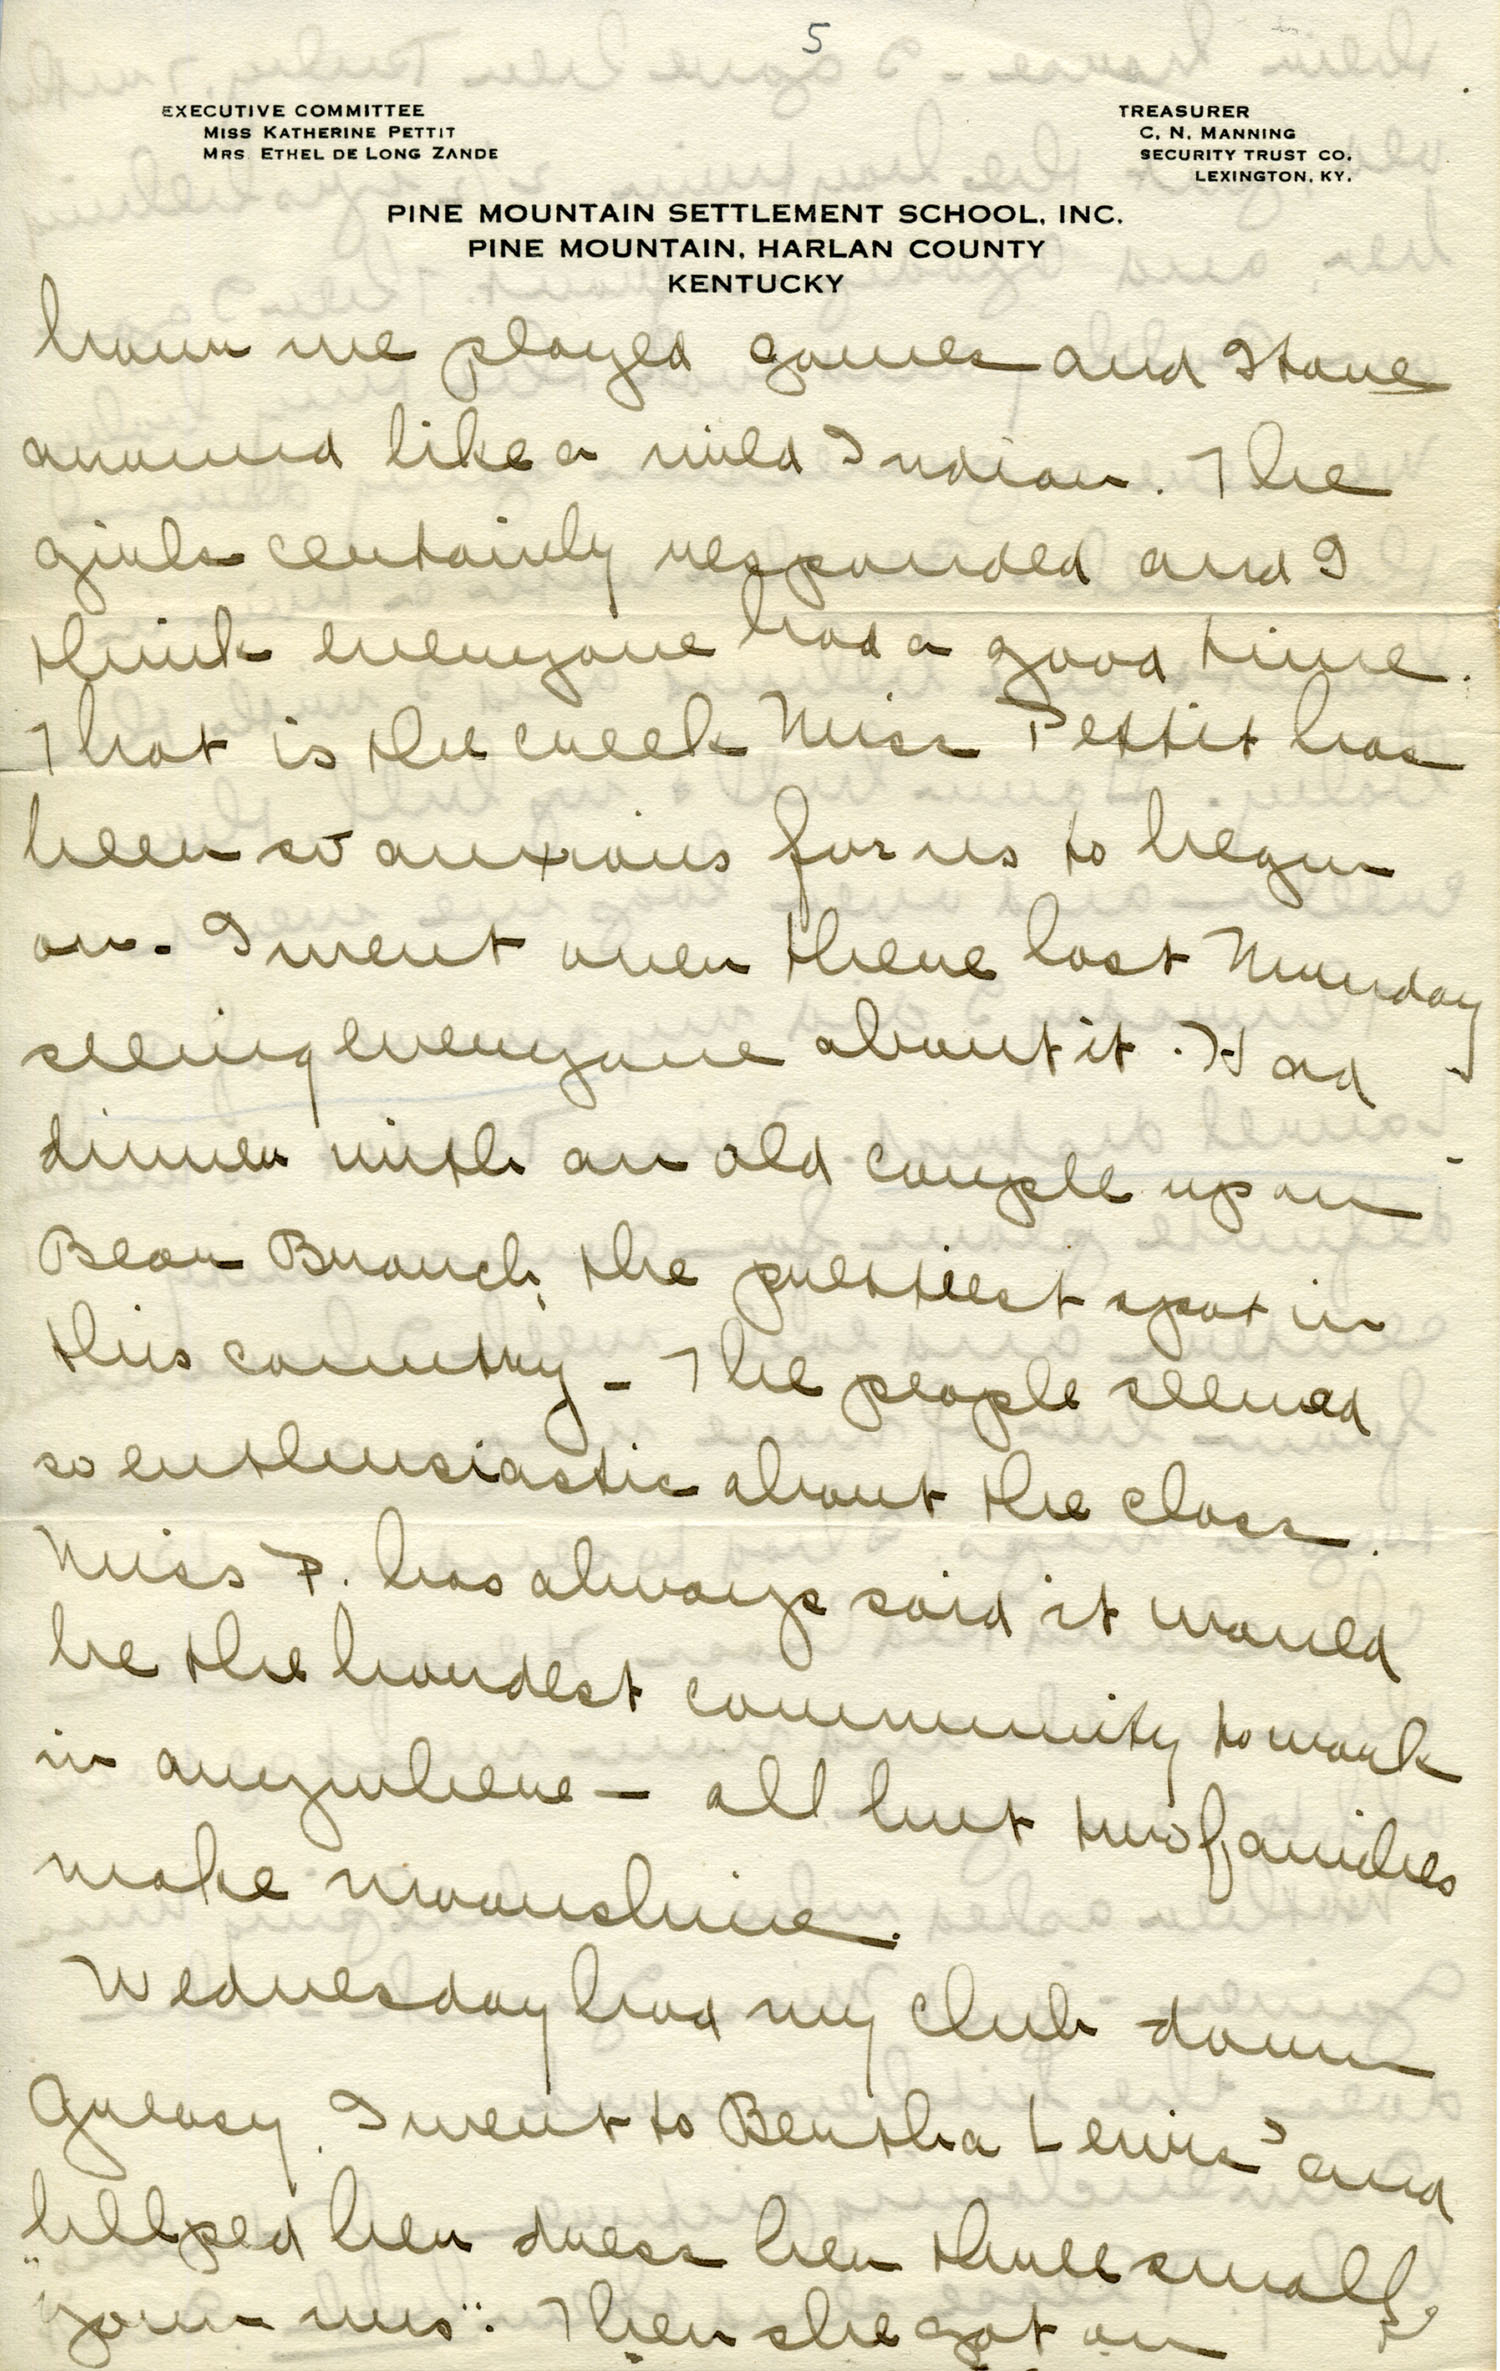 5
EXECUTIVE COMMITTEE
MISS KATHERINE PETTIT
MRS ETHEL DE LONG ZANDE
TREASURER
C. N. MANNING
SECURITY TRUST CO.
LEXINGTON, KY.
PINE MOUNTAIN SETTLEMENT SCHOOL, INC.
PINE MOUNTAIN, HARLAN COUNTY
KENTUCKY
hour we played games and I tore
around like a wild Indian. The
girls certainly responded and I
think everyone had a good time.
That is the creek Miss Pettit has
been so anxious for us to begin
on. I went over there last Monday
seeing everyone about it. Had
dinner with an old couple up on
Bear Branch, the prettiest spot in
this country - The people seemed
so enthusiastic about the class.
Miss P. has always said it would
be the hardest community to work
in anywhere - all but two families
make moonshine.
Wednesday had my club down
Greasy. I went to Bertha Lewis' and
helped her dress her three small
"young uns". Then she got on